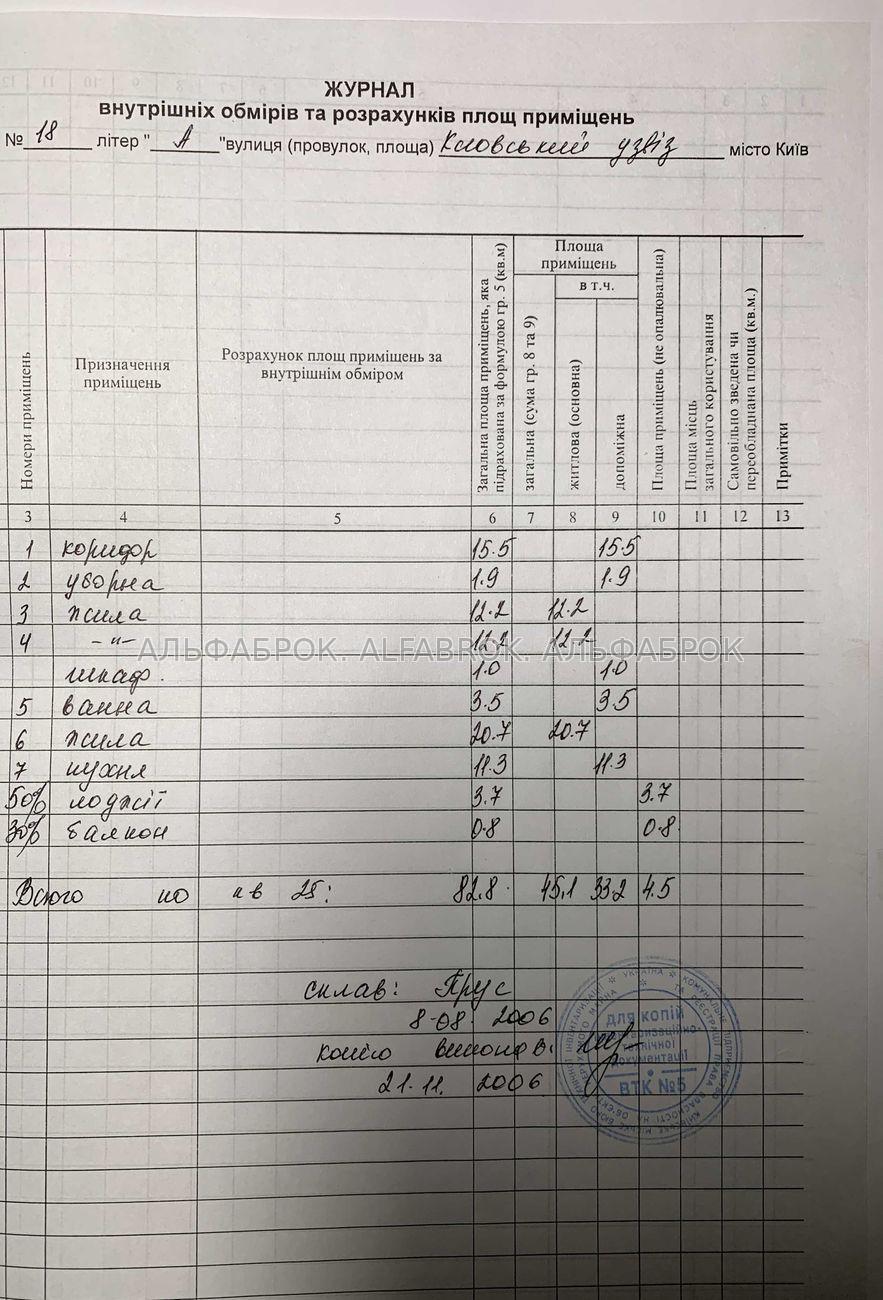 ЖУРНАЛ
внутрішніх обмірів та розрахунків площ приміщень
№ 18 літер " А " вулиця (провулок, площа) Кловський узвіз місто Київ
Номери приміщень
Призначення приміщень
Розрахунок площ приміщень за внутрішнім обміром
Загальна площа приміщень, яка підрахована за формулою гр. 5 (кв.м)
Площа приміщень
загальна (сума гр. 8 та 9)
в т.ч.
житлова (основна)
допоміжна
Площа приміщень (не опалювальна)
Площа місць загального користування
Самовільно зведена чи переобладнана площа (кв.м.)
Примітки
3 4 5 6 7 8 9 10 11 12 13
1 коридор 15.5 15.5
2 уборна 1.9 1.9
3 жила 12.2 12.2
4 –"– 12.2 12.2
АЛЬФАБРОК. ALFABROK. АЛЬФАБРОК
шкаф. 1.0 1.0
5 ванна 3.5 3.5
6 жила 20.7 20.7
7 кухня 11.3 11.3
50% лоджії 3.7 3.7
30% балкон 0.8 0.8
Всього по кв 25: 82.8 45.1 33.2 4.5
склав: Прус
8-08. 2006
копію виконав:
21.11. 2006
УКРАЇНА
для копій
технічної
документації
ВТК №5